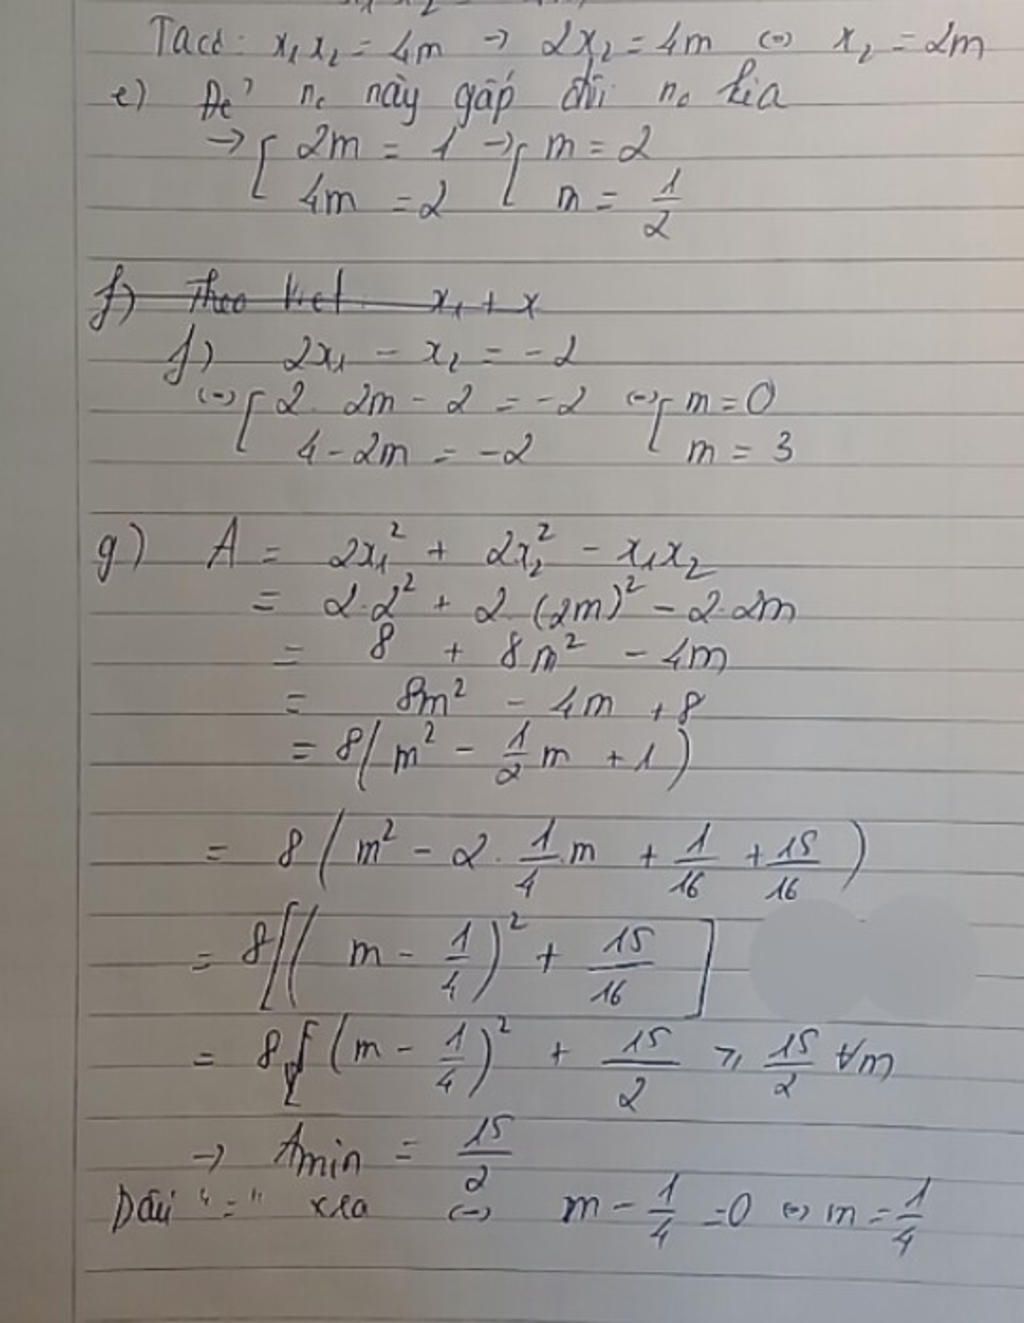 Ta có: x₁x₂ = 4m → 2x₂ = 4m ⇔ x₂ = 2m
e) Để n₀ này gấp đôi n₀ kia
→ [ 2m = 1 → [ m = 2
4m = 2 m = 1/2
f) Theo Viet x₁ + x
f) 2x₁ - x₂ = -2
⇔ [ 2. 2m - 2 = -2 ⇔ [ m = 0
4 - 2m = -2 m = 3
g) A = 2x₁² + 2x₂² - x₁x₂
= 2.2² + 2 (2m)² - 2.2m
= 8 + 8m² - 4m
= 8m² - 4m + 8
= 8(m² - 1/2 m + 1)
= 8(m² - 2. 1/4 m + 1/16 + 15/16)
= 8[(m - 1/4)² + 15/16]
= 8(m - 1/4)² + 15/2 ≥ 15/2 ∀m
→ Amin = 15/2
Dấu "=" xra ⇔ m - 1/4 = 0 ⇔ m = 1/4